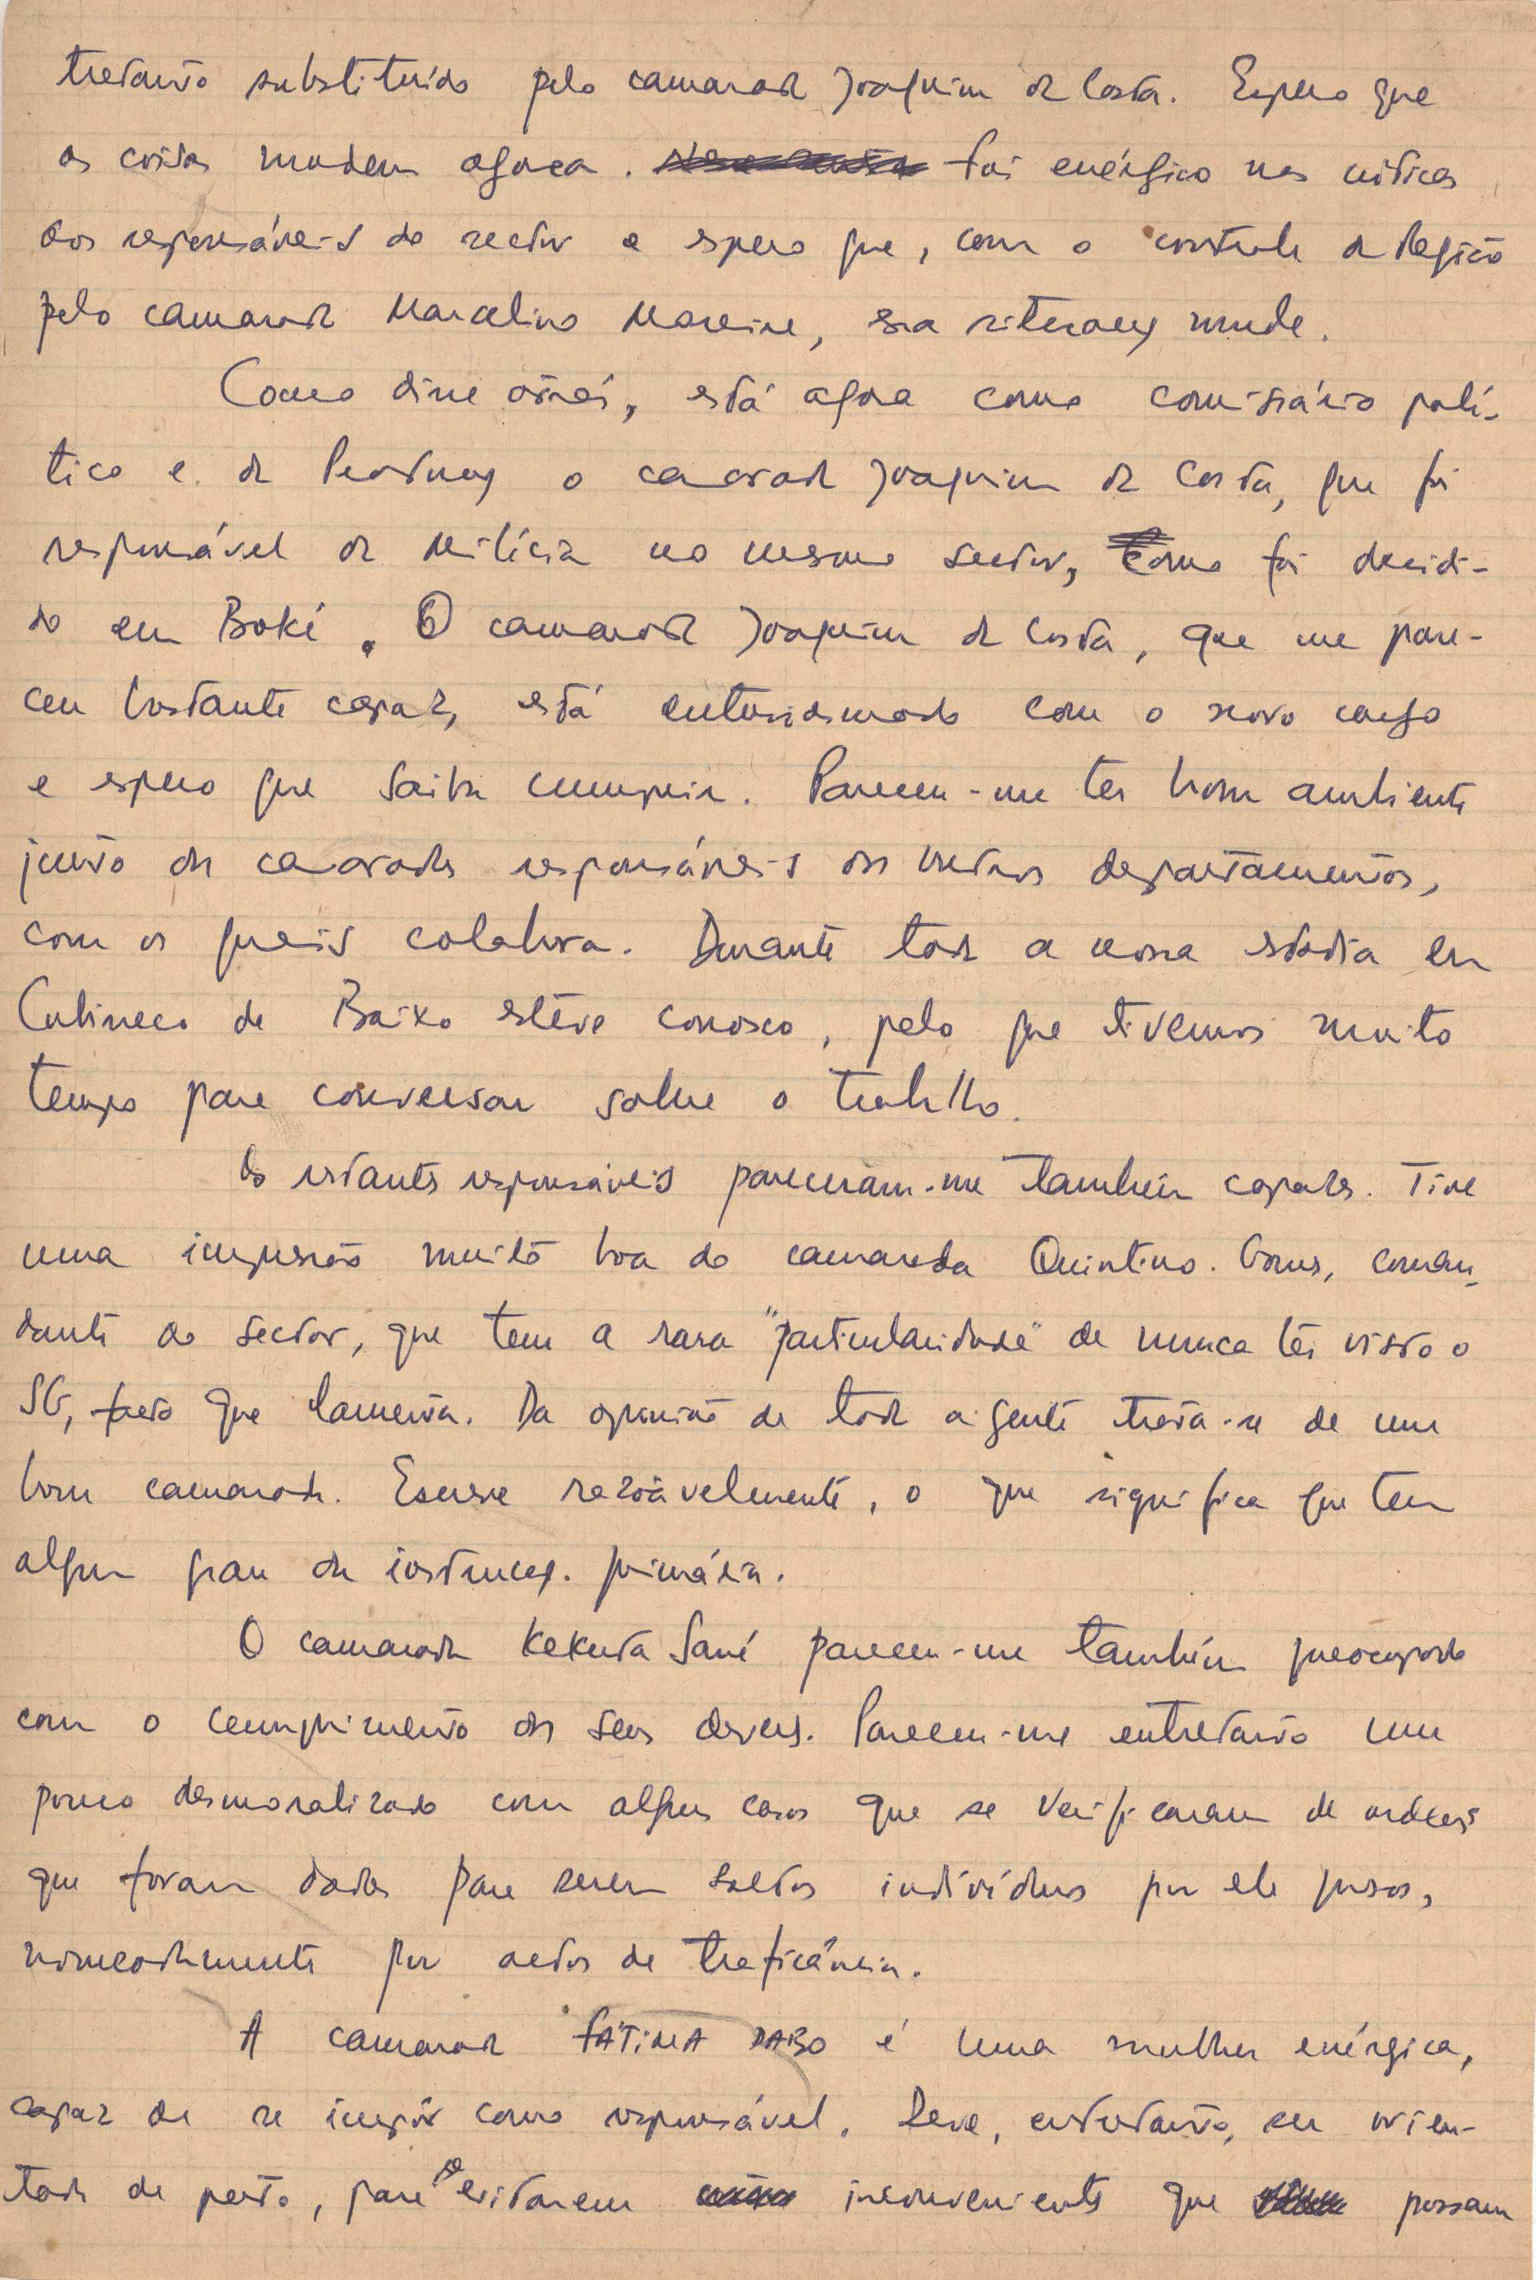 tretanto substituído pelo camarada Joaquim da Costa. Espero que
as coisas mudem agora. fui enérgico nas críticas
aos responsáveis do sector e espero que, com o controle da Região
pelo camarada Marcelino Moreira, essa situação mude.
Como disse atrás, está agora como comissário polí-
tico e. de o camarada Joaquim da Costa, que foi
responsável da Milícia no mesmo sector, como foi decidi-
do em Boké. O camarada Joaquim da Costa, que me pare-
ceu bastante capaz, está entusiasmado com o novo cargo
e espero que saiba cumprir. Pareceu-me ter bom ambiente
junto dos camaradas responsáveis dos outros departamentos,
com os quais colabora. Durante toda a nossa estadia em
Cubisseco de Baixo estêve conosco, pelo que tivemos muito
tempo para conversar sobre o trabalho.
Os restantes responsáveis pareceram-me também capazes. Tive
uma impressão muito boa do camarada Quintino. Gomes, coman-
dante do sector, que tem a rara "particularidade" de nunca ter visto o
SG, facto que lamenta. Da opinião de toda a gente trata-se de um
bom camarada. Escreve razoàvelmente, o que significa que tem
algum grau de instrução. primária.
O camarada Kekuta Sané pareceu-me também preocupado
com o cumprimento dos seus deveres. Pareceu-me entretanto um
pouco desmoralizado com alguns casos que se verificaram de ordens
que foram dadas para serem soltos indivíduos por ele presos,
nomeadamente por actos de traficância.
A camarada FÁTIMA DABO é uma mulher enérgica,
capaz de se impôr como responsável. Deve, entretanto, ser orien-
tada de perto, para se evitarem inconvenientes que possam